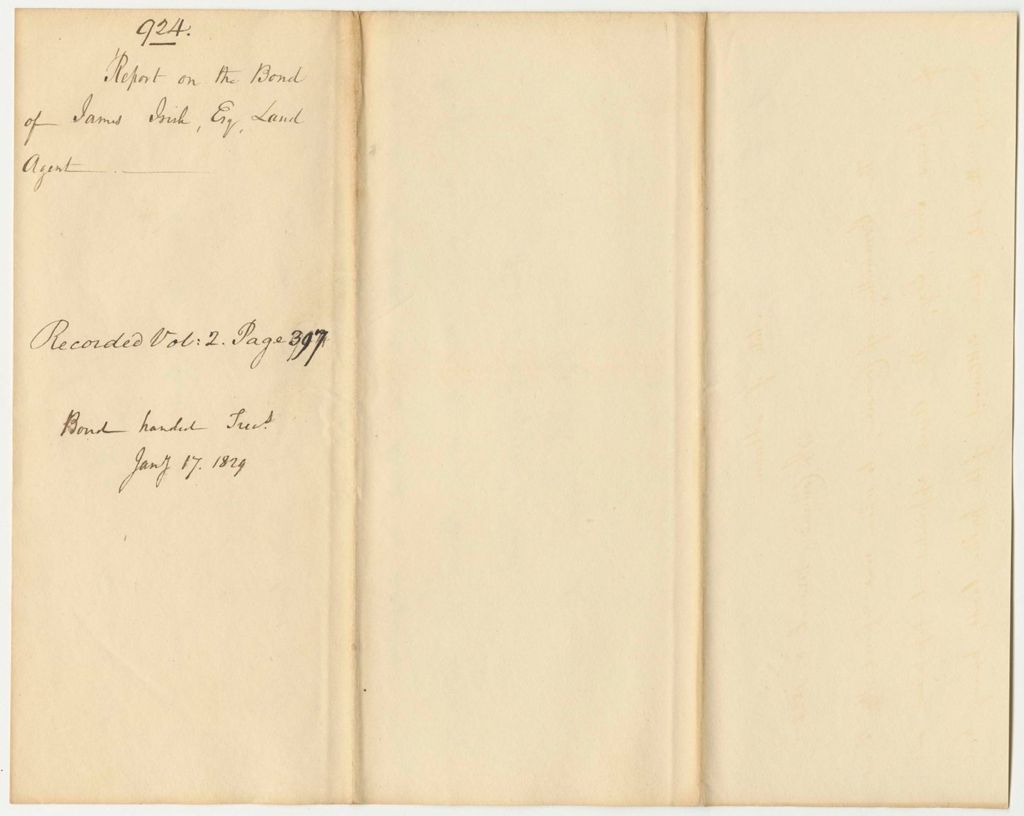 924.
Report on the Bond
of James Irish, Esq, Land
Agent
Recorded Vol: 2. Page 397
Bond handed Treas.
Jany 17. 1829